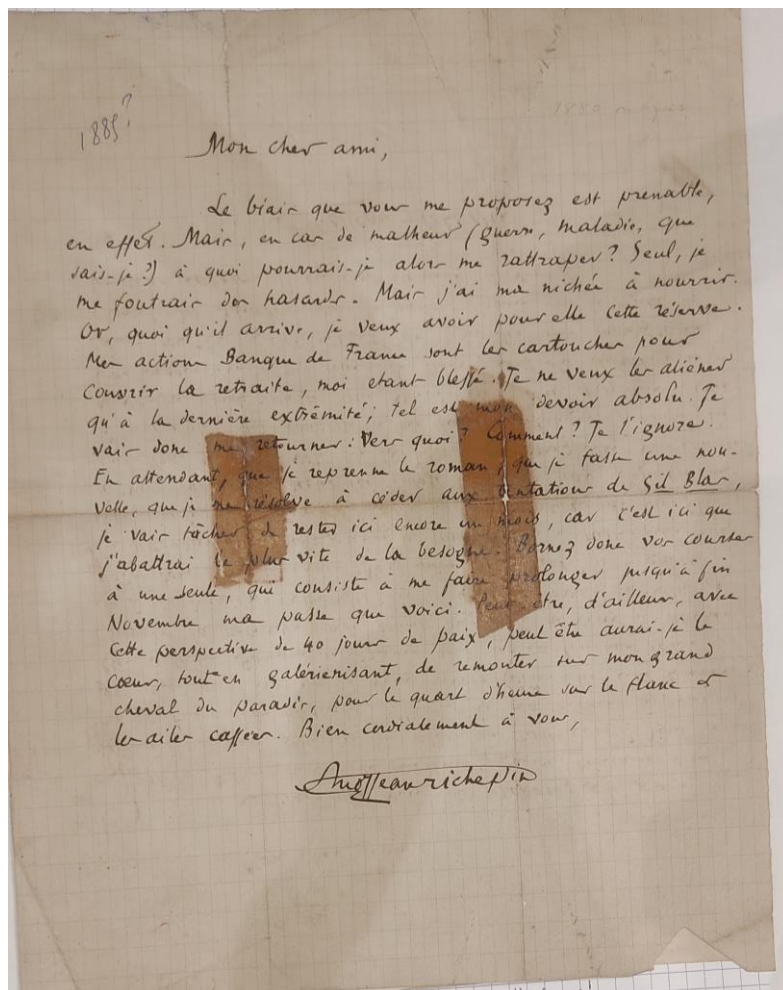 1885?
1880 ou après
Mon cher ami,
Le biais que vous me proposez est prenable,
en effet. Mais, en cas de malheur (guerre, maladie, que
sais-je ?) à quoi pourrais-je alors me rattraper ? Seul, je
me foutrais des hasards. Mais j'ai ma nichée à nourrir.
Or, quoi qu'il arrive, je veux avoir pour elle cette réserve.
Mes actions Banque de France sont les cartouches pour
couvrir la retraite, moi étant blessé. Je ne veux les aliéner
qu'à la dernière extrémité ; tel est mon devoir absolu. Je
vais donc me retourner : Vers quoi ? Comment ? Je l'ignore.
En attendant, que je reprenne le roman, que je fasse une nou-
velle, que je me résolve à céder aux tentations de Gil Blas,
je vais tâcher de rester ici encore un mois, car c'est ici que
j'abattrai le plus vite de la besogne. Bornez donc vos courses
à une seule, qui consiste à me faire prolonger jusqu'à fin
Novembre ma passe que voici. Peut-être, d'ailleurs, avec
cette perspective de 40 jours de paix, peut être aurai-je le
cœur, tout en galérienisant, de remonter sur mon grand
cheval du paradis, pour le quart d'heure sur le flanc et
les ailes cassées. Bien cordialement à vous,
Jean richepin